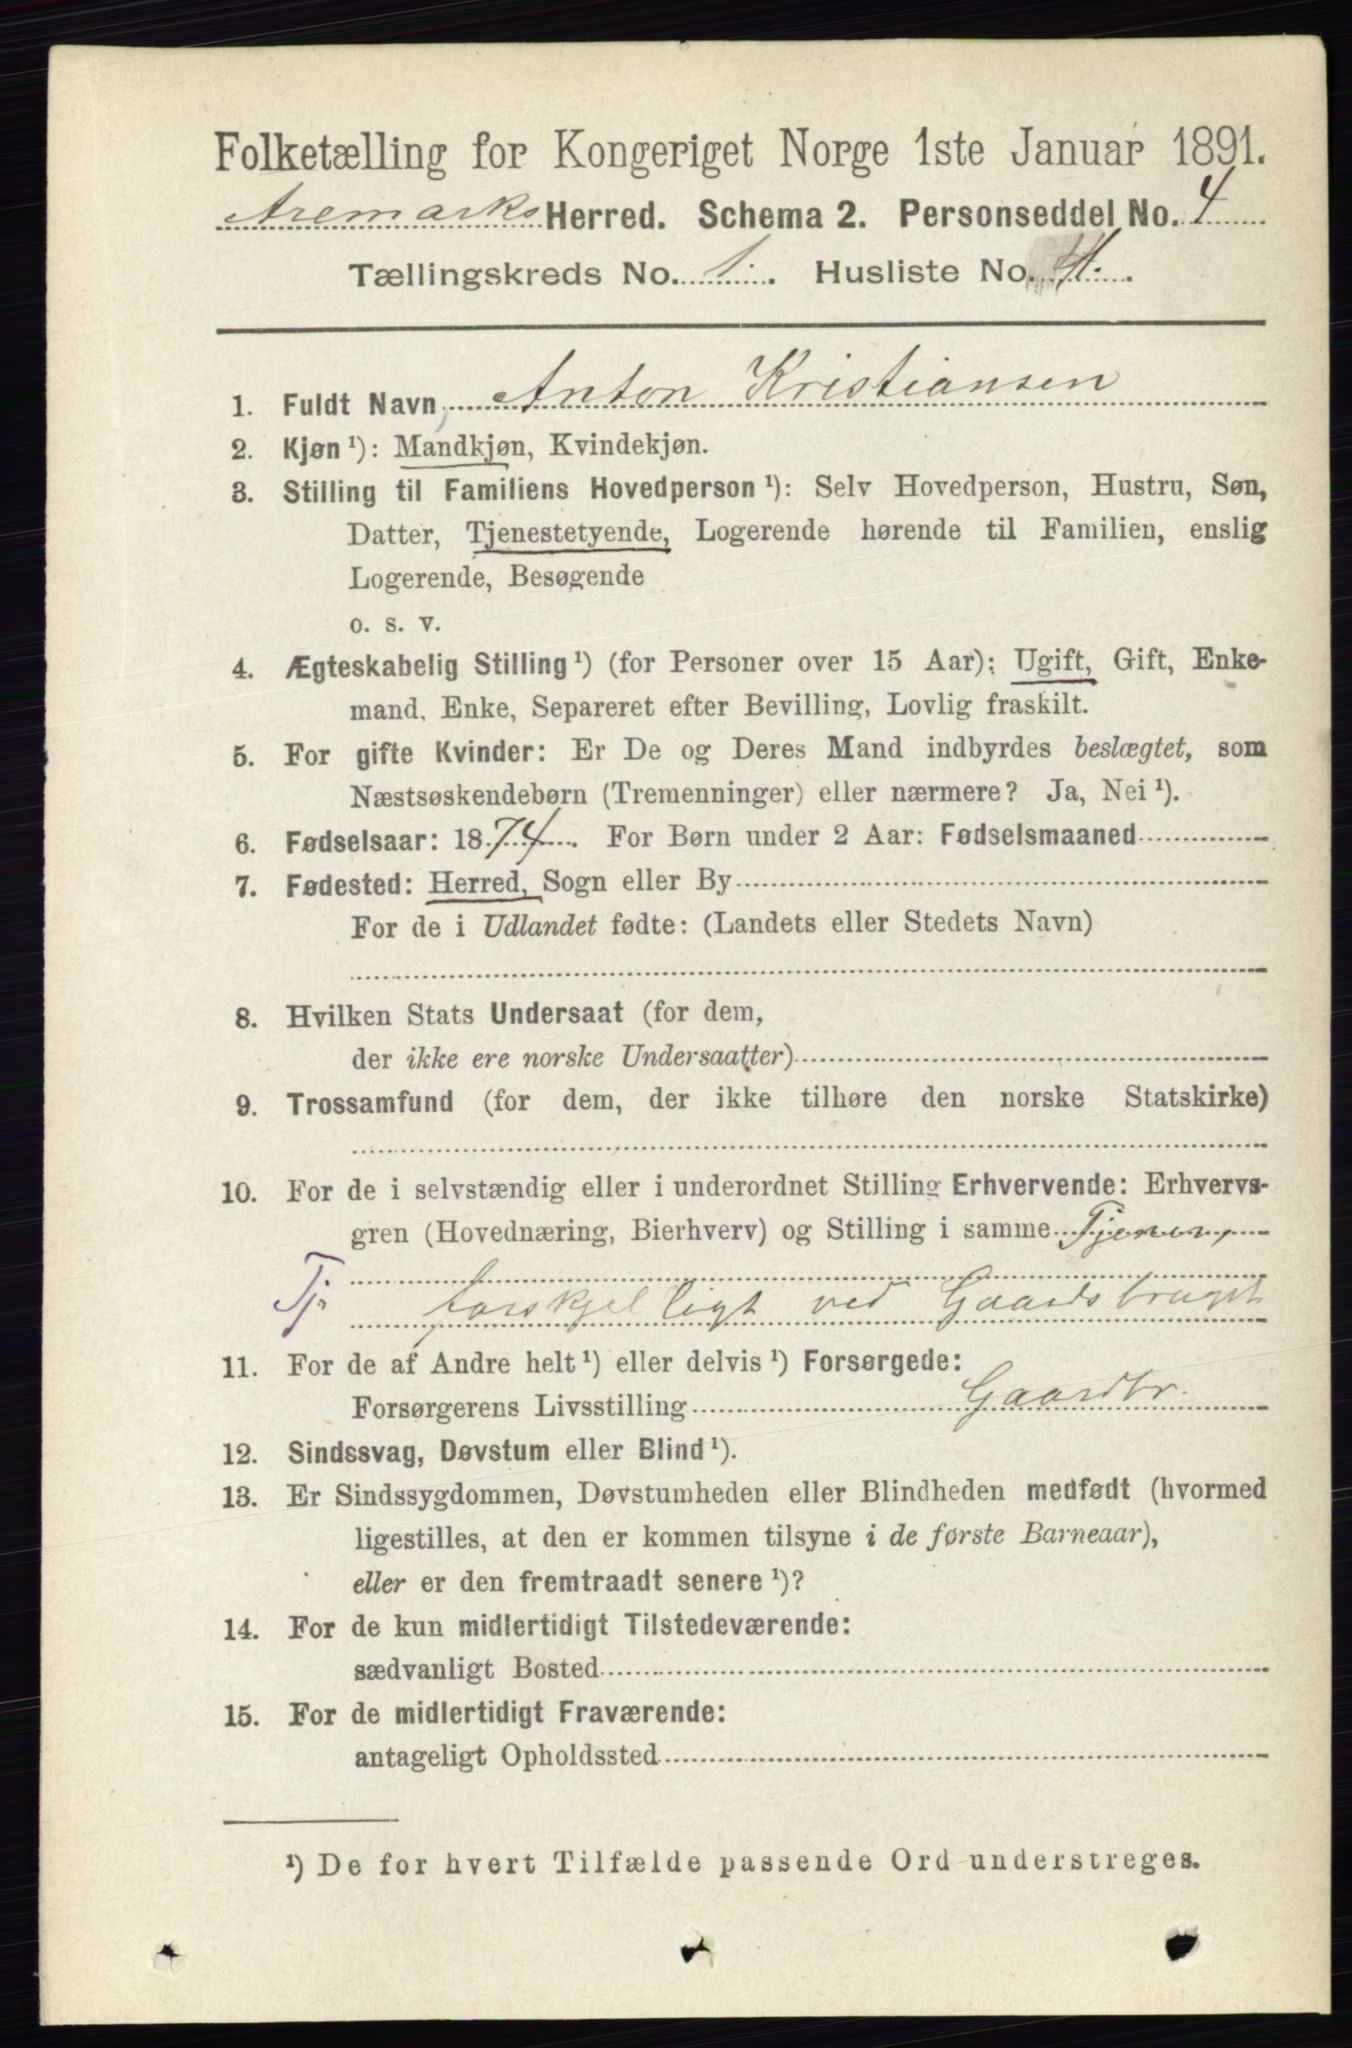 Folketælling for Kongeriget Norge 1ste Januar 1891.
Aremarks Herred. Schema 2. Personseddel No. 4
Tællingskreds No. 1. Husliste No.
1. Fuldt Navn, Anton Kristiansen
2. Kjøn ¹): Mandkjøn, Kvindekjøn.
3. Stilling til Familiens Hovedperson ¹): Selv Hovedperson, Hustru, Søn,
Datter, Tjenestetyende, Logerende hørende til Familien, enslig
Logerende, Besøgende
o. s. v.
4. Ægteskabelig Stilling ¹) (for Personer over 15 Aar): Ugift, Gift, Enke-
mand, Enke, Separeret efter Bevilling, Lovlig fraskilt.
5. For gifte Kvinder: Er De og Deres Mand indbyrdes beslægtet, som
Næstsøskendebørn (Tremenninger) eller nærmere? Ja, Nei ¹).
6. Fødselsaar: 1874. For Børn under 2 Aar: Fødselsmaaned
7. Fødested: Herred, Sogn eller By
For de i Udlandet fødte: (Landets eller Stedets Navn)
8. Hvilken Stats Undersaat (for dem,
der ikke ere norske Undersaatter)
9. Trossamfund (for dem, der ikke tilhøre den norske Statskirke)
10. For de i selvstændig eller i underordnet Stilling Erhvervende: Erhvervs-
gren (Hovednæring, Bierhverv) og Stilling i samme
Tj. forskjelligt ved Gaardsbruget
11. For de af Andre helt ¹) eller delvis ¹) Forsørgede:
Forsørgerens Livsstilling Gaardbr.
12. Sindssvag, Døvstum eller Blind ¹).
13. Er Sindssygdommen, Døvstumheden eller Blindheden medfødt (hvormed
ligestilles, at den er kommen tilsyne i de første Barneaar),
eller er den fremtraadt senere ¹)?
14. For de kun midlertidigt Tilstedeværende:
sædvanligt Bosted
15. For de midlertidigt Fraværende:
antageligt Opholdssted
¹) De for hvert Tilfælde passende Ord understreges.